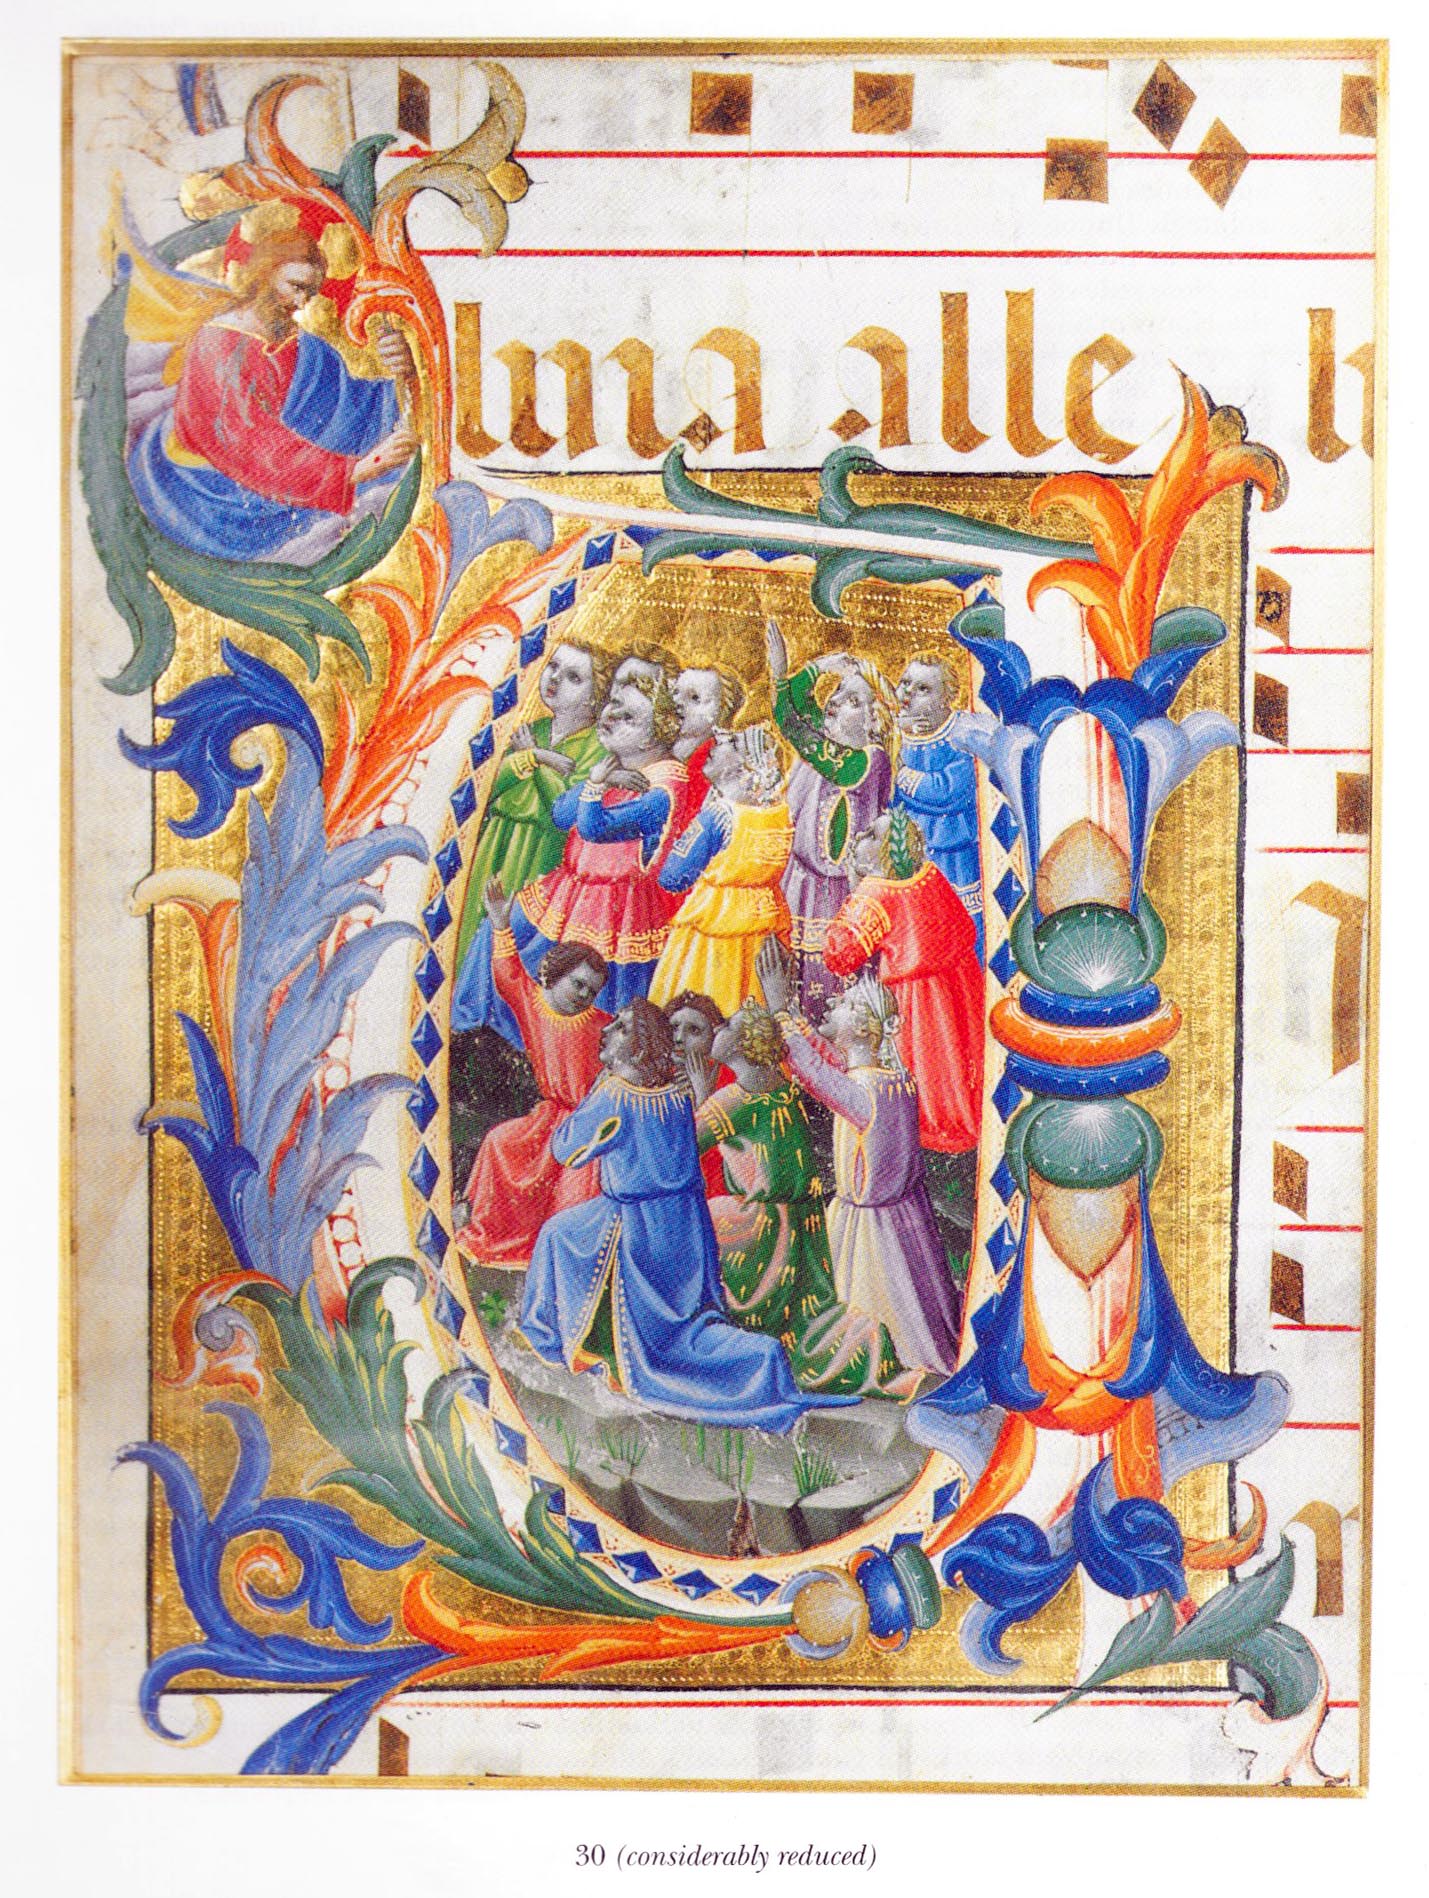 lma alle
30 (considerably reduced)